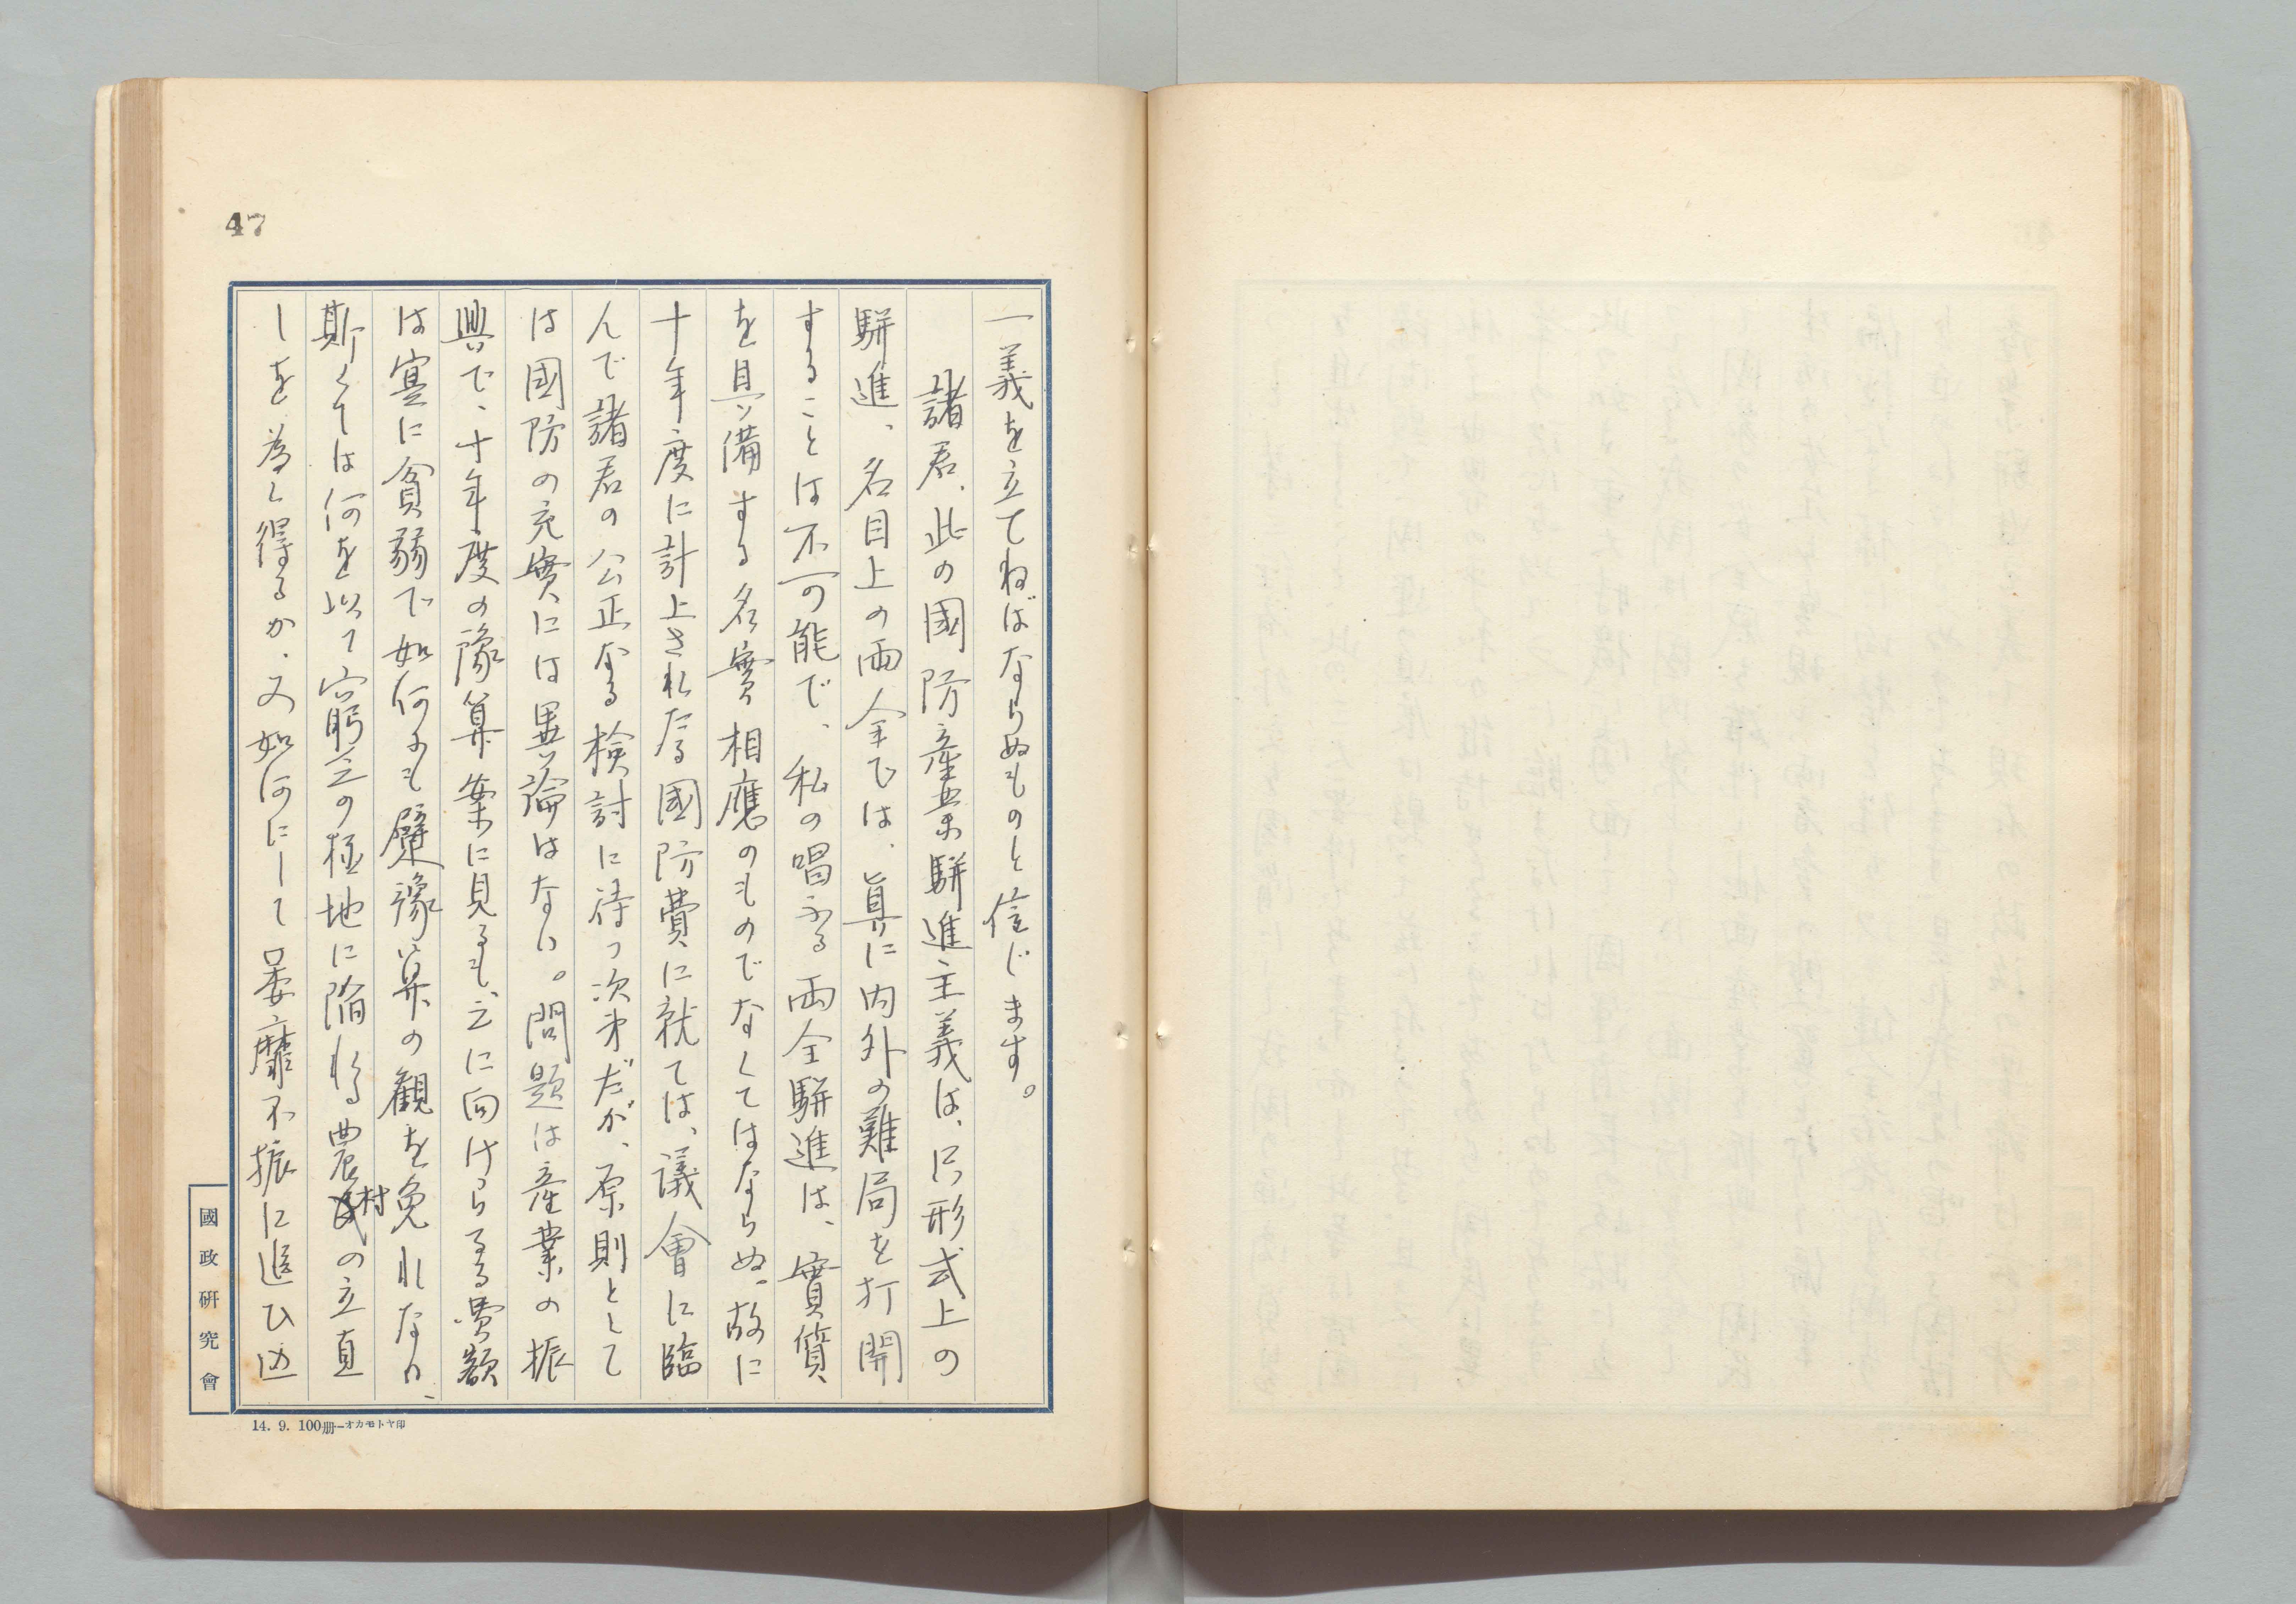 47
一義を立てねばならぬものと信じます。
諸君、此の國防産業駢進主義は、只形式上の
駢進、名目上の両全では、眞に内外の難局を打開
することは不可能で、私の唱ふる両全駢進は、實質
を具備する名實相應のものでなくてはならぬ。故に
十年度に計上されたる國防費に就ては、議會に臨
んで諸君の公正なる検討に待つ次第だが、原則として
は國防の充實には異論はない。問題は産業の振
興で、十年度の豫算案に見るも、之に向けらるる費額
は寔に貧弱で如何にも躄豫算の觀を免れない、
斯くては何を以て窮乏の極地に陥れる農村の立直
しを為し得るか、又如何にして萎靡不振に追ひ込
國政硏究會
14. 9. 100冊—オカモトヤ印